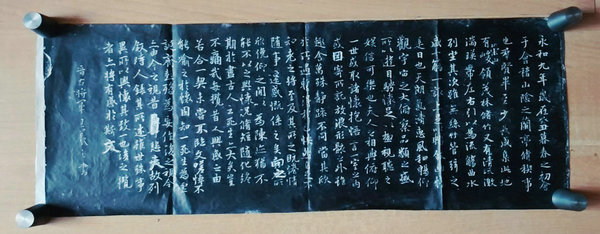 永和九年歲在癸丑暮春之初會
于會稽山陰之蘭亭脩稧事
也群賢畢至少長咸集此地
有崇山峻領茂林脩竹又有清流激
湍暎帶左右引以為流觴曲水
列坐其次雖無絲竹管弦之
盛一觴一詠亦足以暢敘幽情
是日也天朗氣清惠風和暢仰
觀宇宙之大俯察品類之盛
所以遊目騁懷足以極視聽之
娛信可樂也夫人之相與俯仰
一世或取諸懷抱悟言一室之內
或因寄所託放浪形骸之外雖
趣舍萬殊靜躁不同當其欣
於所遇蹔得於己怏然自足不
知老之將至及其所之既惓情
隨事遷感慨係之矣向之所
欣俛仰之閒以為陳迹猶不
能不以之興懷況脩短隨化終
期於盡古人云死生亦大矣豈
不痛哉每攬昔人興感之由
若合一契未嘗不臨文嗟悼不
能喻之於懷固知一死生為虛
誕齊彭殤為妄作後之視今
亦由今之視昔悲夫故列
敘時人錄其所述雖世殊事
異所以興懷其致一也後之攬
者亦將有感於斯文
晉右將軍王羲之書